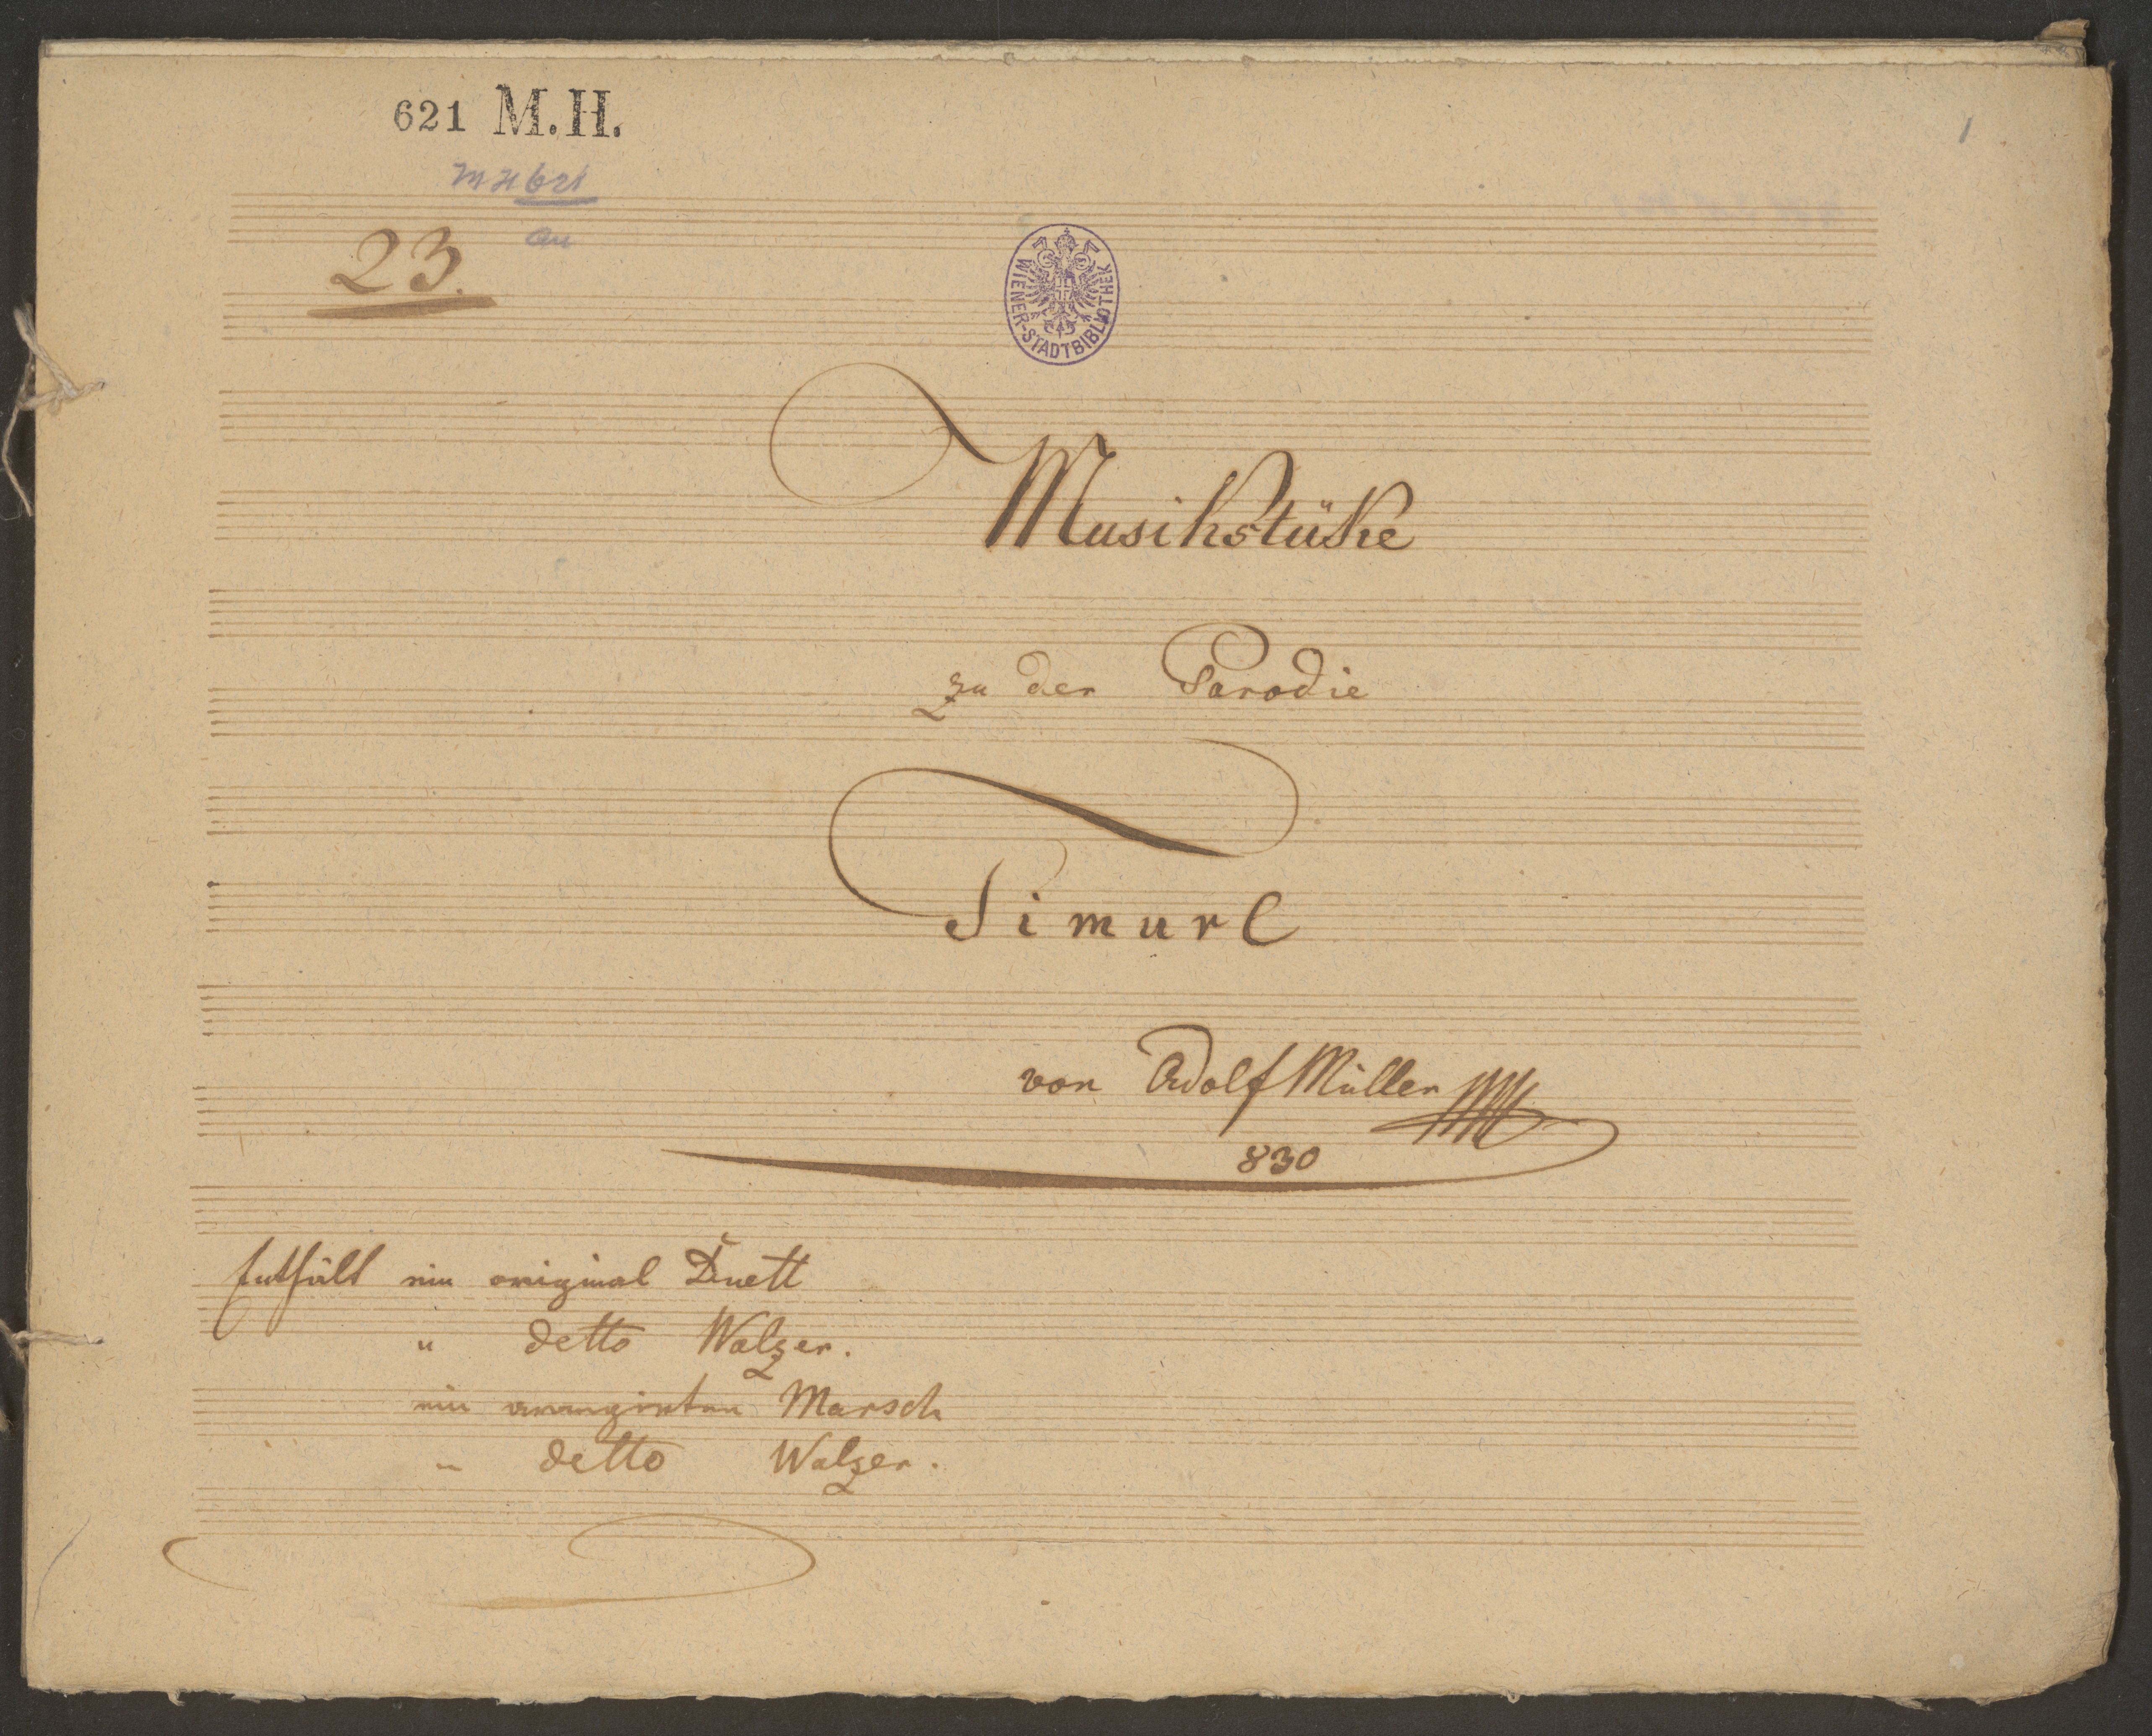 621 M.H.
MH 621
1
23.
WIENER-STADTBIBLIOTHEK
Musikstüke
zu der Parodie
Timurl
von Adolf Müller
830
Enthält ein original Duett
" detto Walzer.
ein arrangirten Marsch
" detto Walzer.